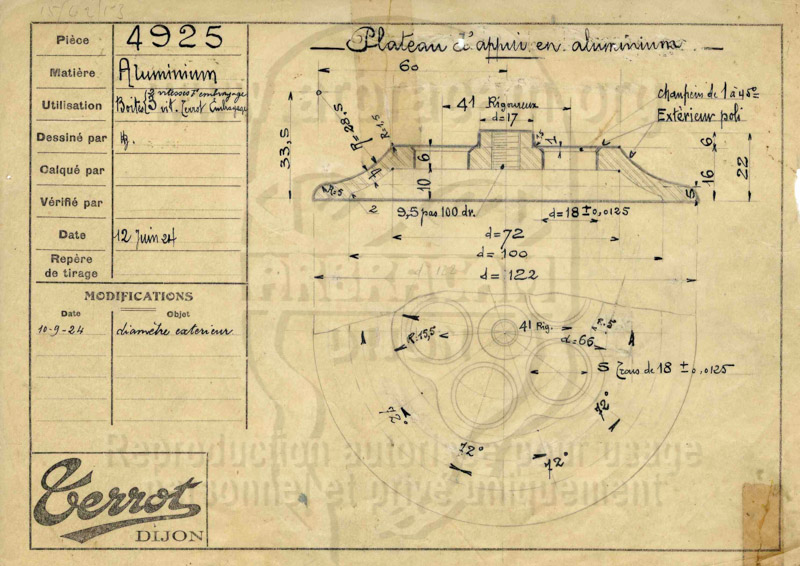 15/02/13
Pièce 4925
Matière Aluminium
Utilisation Boites 3 vitesses d'embrayage
3 vit. Terrot Embrayage
Dessiné par
Calqué par
Vérifié par
Date 12 Juin 24
Repère
de tirage
MODIFICATIONS
Date Objet
10-9-24 diamètre exterieur
Terrot
DIJON
Plateau d'appui en aluminium
60
41 Rigoureux
d=17
chanfreins de 1 à 45°
Extérieur poli
33,5
R=28,5
R=1,5
6
10
1
6
16
22
5
R=5
2
9,5 pas 100 dr.
d=18 ±0,0125
d=72
d=100
d=122
41 Rig.
R=5
R=15,5
d=66
5 Trous de 18 ±0,0125
72°
72°
72°
72°
Reproduction autorisée pour usage
personnel et privé uniquement